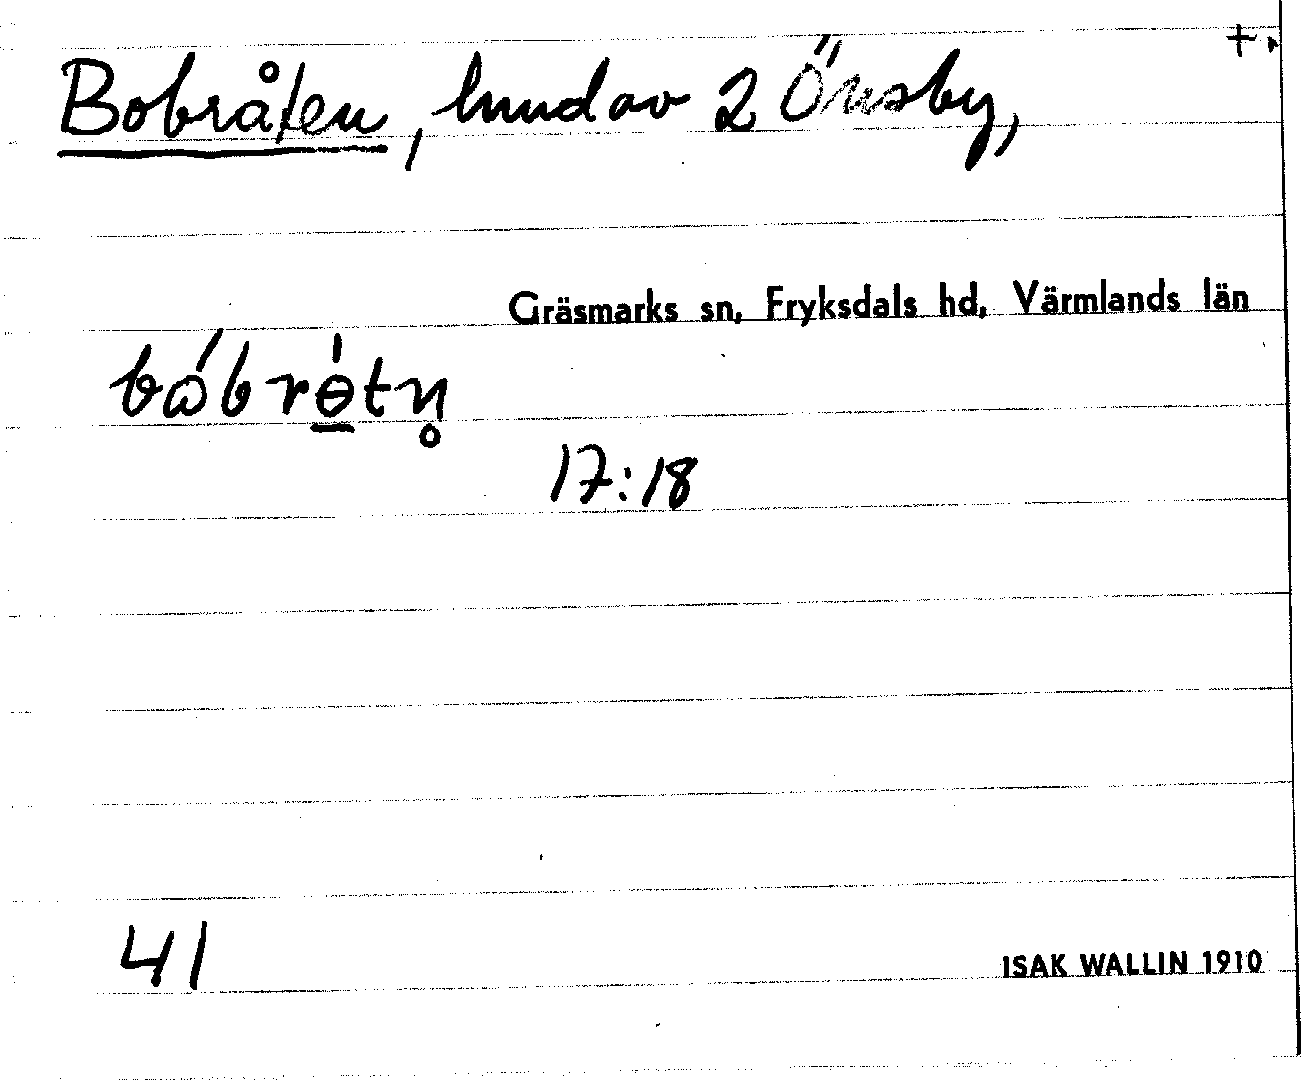 +.
Bobråten, hmd av 2 Önsby,
Gräsmarks sn, Fryksdals hd, Värmlands län
bɷ́brɵ̠̀tn̥
17:18
41
ISAK WALLIN 1910